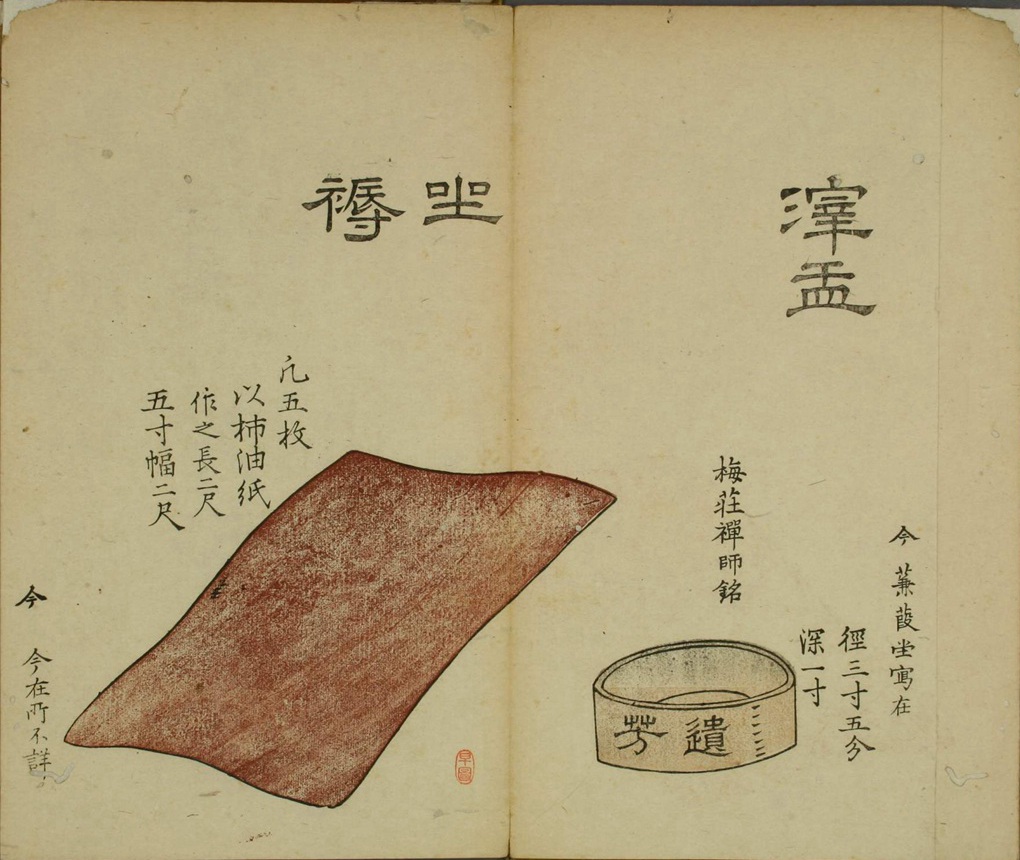 滓盂
今 蒹葭堂寫在
徑三寸五分
深一寸
梅莊禪師銘
遺芳
坐褥
凢五枚
以柿油紙
作之長二尺
五寸幅二尺
今 今在所不詳